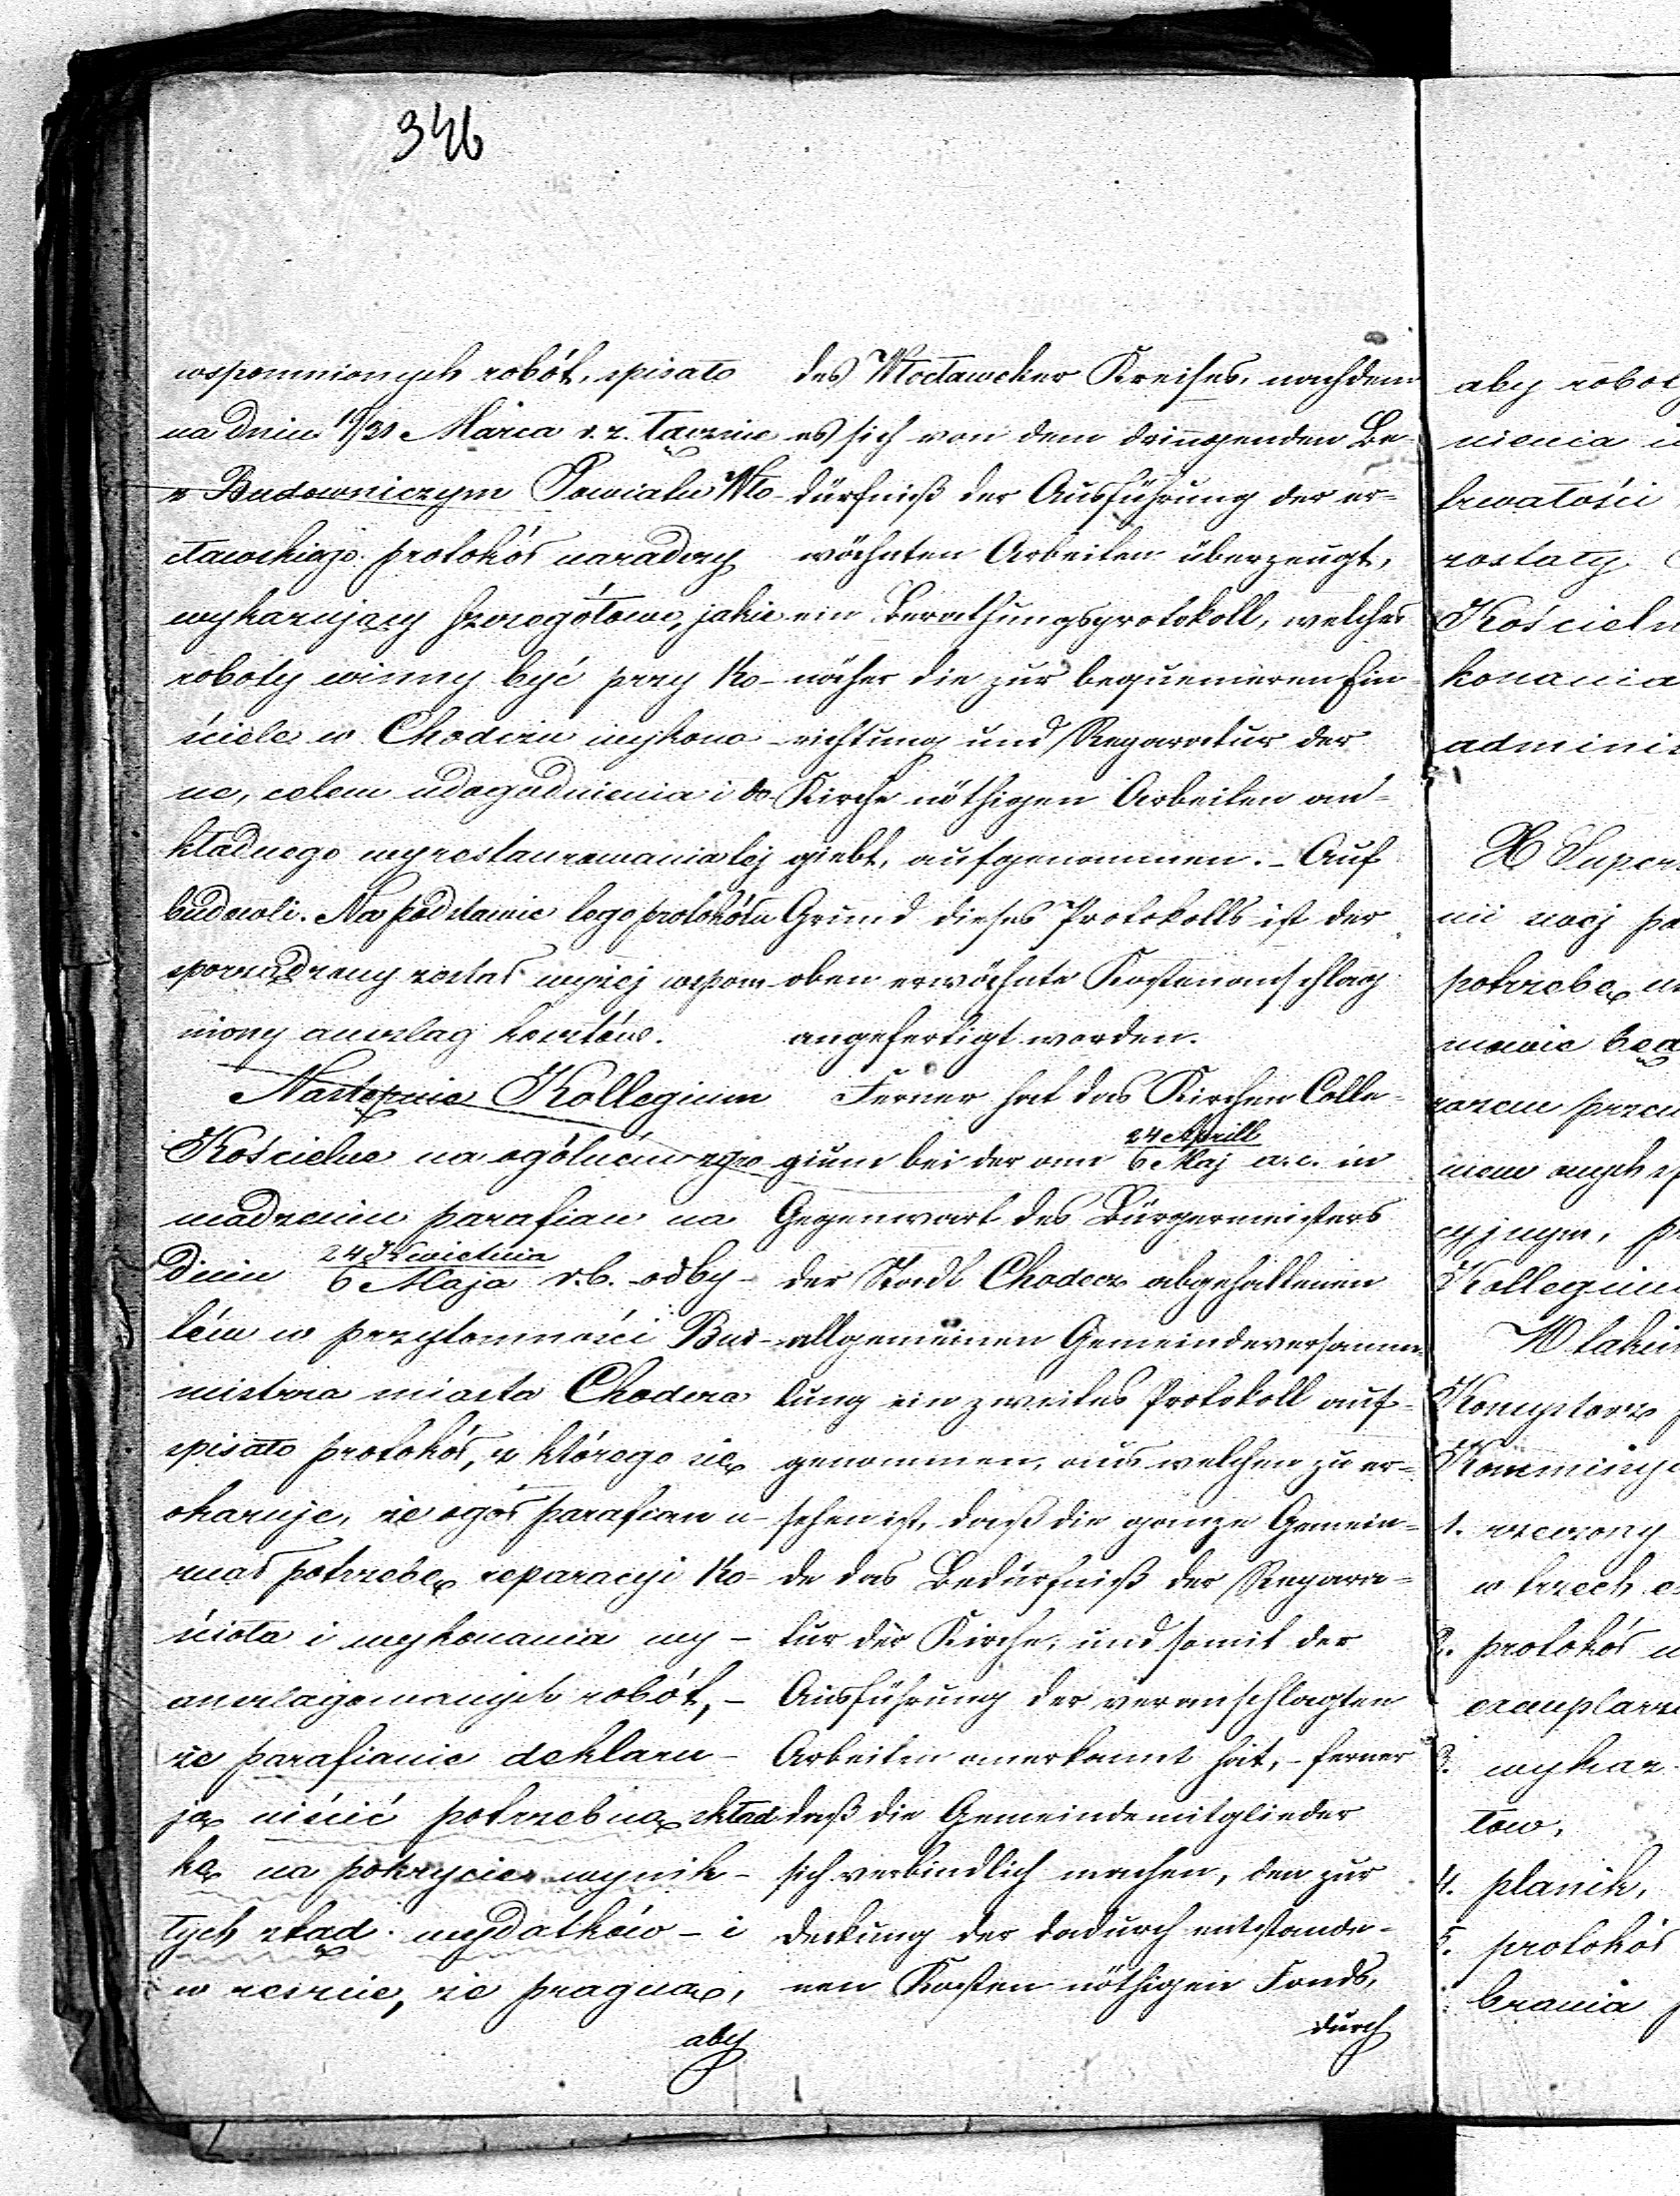 346
wspomnionych robót, spisało
na dniu 19/31 Marca r. z. łącznie
z Budowniczym Powiatu Wło-
cławskiego protokół naradczy
wykazujący szczegółowo, jakie
roboty winny być przy Ko-
ściele w Chodczu wykona
ne, celem udogodnienia i do
kładnego wyrestaurowania tej
budowli. Na podstawie tego protokółu
sporządzony został wyżej wspom
niony anszlag kosztów.
Następnie Kollegium
Kościelne na ogólném zgro
madzeniu parafian na
dniu 24 Kwietnia / 6 Maja r. b. odby-
tém w przytomności Bur-
mistrza miasta Chodcza
spisało protokół, z którego się
okazuje, że ogół parafian u-
znał potrzebę reparacyi Ko-
ścioła i wykonania wy-
anszlagowanych robót, -
że parafianie deklaru-
ją uiścić potrzebną skład
kę na pokrycie wynik-
łych ztąd wydatków - i
w reszcie, że pragną,
aby
des Włocławeker Kreises, nachdem
es sich von dem dringenden Be-
dürfniß der Ausführung der er-
wähnten Arbeiten überzeugt,
ein Berathungsprotokoll, welches
näher die zur bequemeren Ein-
richtung und Reparatur der
Kirche nöthigen Arbeiten an-
giebt, aufgenommen. - Auf
Grund dieses Protokolls ist der
oben erwähnte Kostenanschlag
angefertigt worden.
Ferner hat das Kirchen Colle-
gium bei der am 24 Aprill / 6 Maj a. c. in
Gegenwart des Bürgermeisters
der Stadt Chodecz abgehaltenen
allgemeinen Gemeindeversamm-
lung ein zweites Protokoll auf-
genommen, aus welchem zu er-
sehen ist, daß die ganze Gemein-
de das Bedürfniß der Repara-
tur der Kirche, und somit der
Ausführung der veranschlagten
Arbeiten anerkannt hat, - ferner
daß die Gemeindemitglieder
sich verbindlich machen, den zur
Deckung der dadurch entstande-
nen Kosten nöthigen Fonds,
durch
aby robot
nienia
trwałości
zostały
Kościeln
konania
admini
X Super
nii
potrzebę
mowie
razem
Kollegium
W takim
1.
w trzech
2. protokół
exemplarz
3. wykaz
tow,
4. planik,
5. protokół
brania